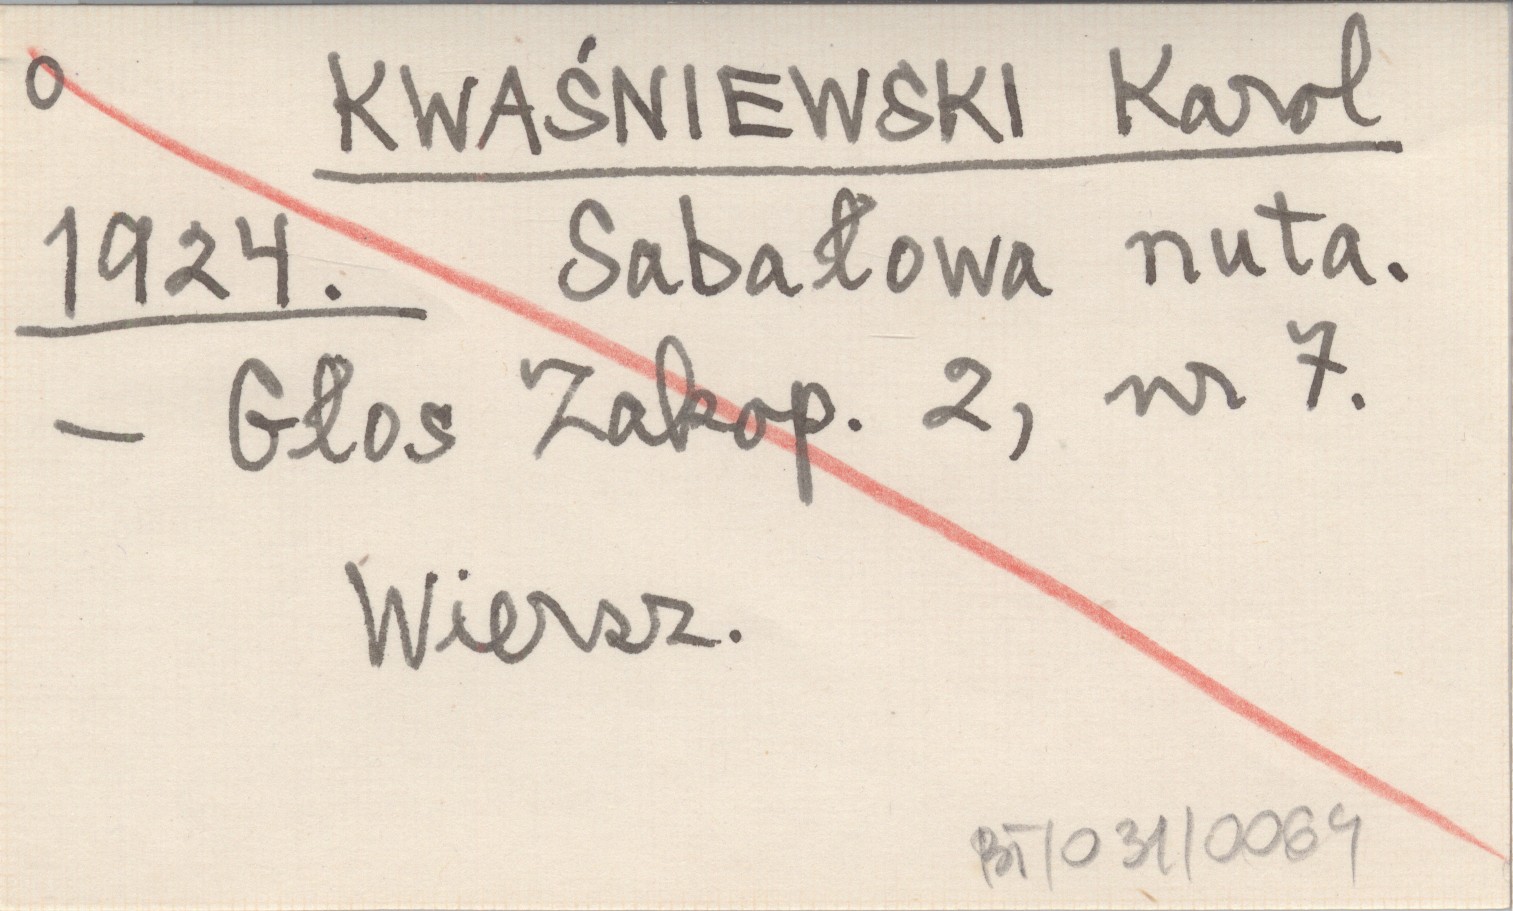 o KWAŚNIEWSKI Karol
1924. Sabałowa nuta.
– Głos Zakop. 2, nr 7.
Wiersz.
BT/031/0064